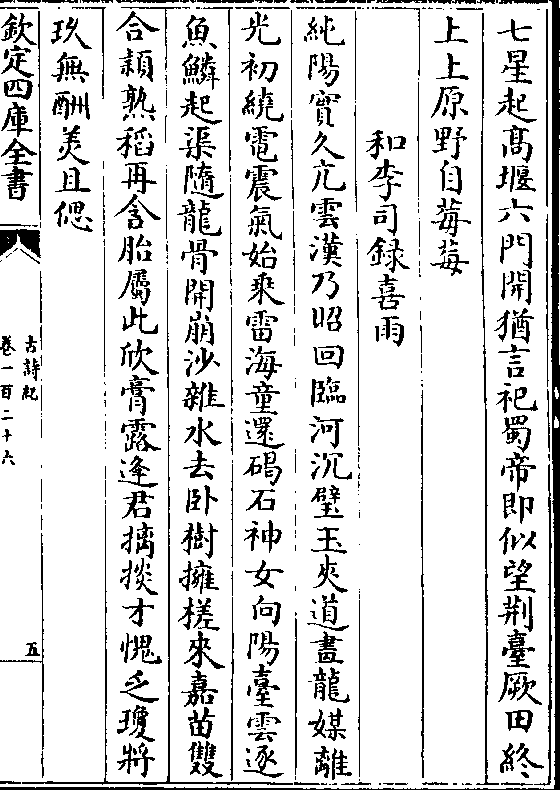 七星起髙堰六門開猶言祀蜀帝即似望荆臺厥田終
上上原野自莓莓
和李司録喜雨
純陽實久亢雲漢乃昭回臨河沉璧玉夾道畫龍媒離
光初繞電震氣始乘雷海童還碣石神女向陽臺雲逐
魚鱗起渠隨龍骨開崩沙雜水去卧樹擁槎來嘉苗雙
合穎熟稻再含胎屬此欣膏露逢君摛掞才愧乏瓊將
玖無酬美且偲
欽定四庫全書
古詩紀
卷一百二十六
五